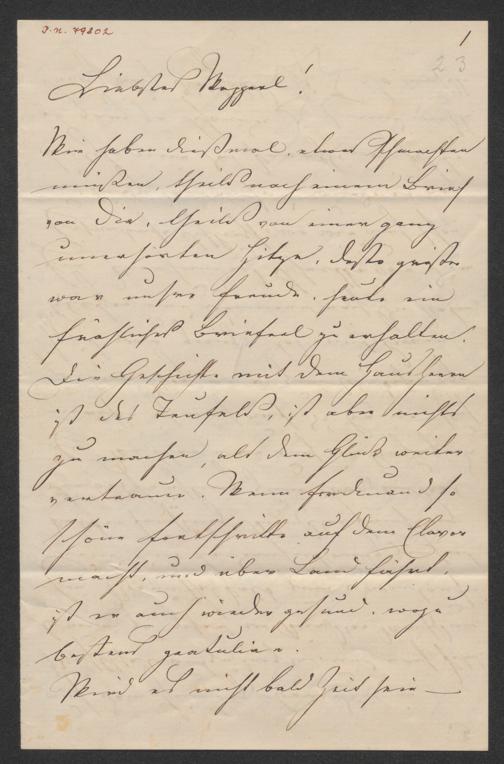 I.N. 79802
1
23
Liebstes Mopperl!
Wir haben dießmal, etwas schmachten
müßen, theils nach einem Brief
von Dir, theils von einer ganz
unerhörten Hitze, desto größer
war unsre Freude, heute ein
fröhliches Brieferl zu erhalten.
Die Geschichte mit dem Hausherrn
ist des Teufels, ist aber nichts
zu machen, als dem Glück weiter
vertrauen. Wenn Ferdinand so
schöne Fortschritte auf dem Clavier
macht, und über Land fährt,
ist er auch wieder gesund, wozu
bestens gratulire.
Wird es nicht bald Zeit sein —